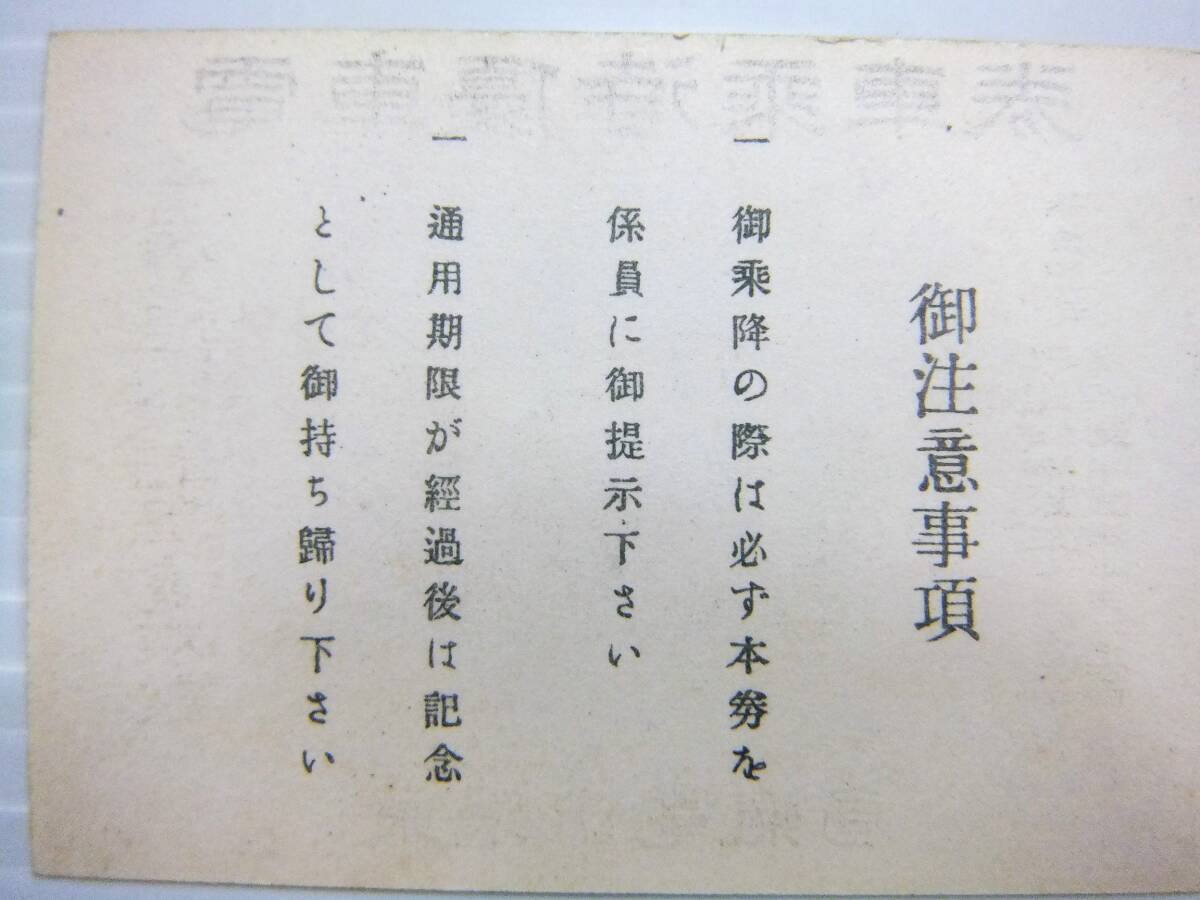 御注意事項
一 御乗降の際は必ず本券を
係員に御提示下さい
一 通用期限が經過後は記念
として御持ち歸り下さい